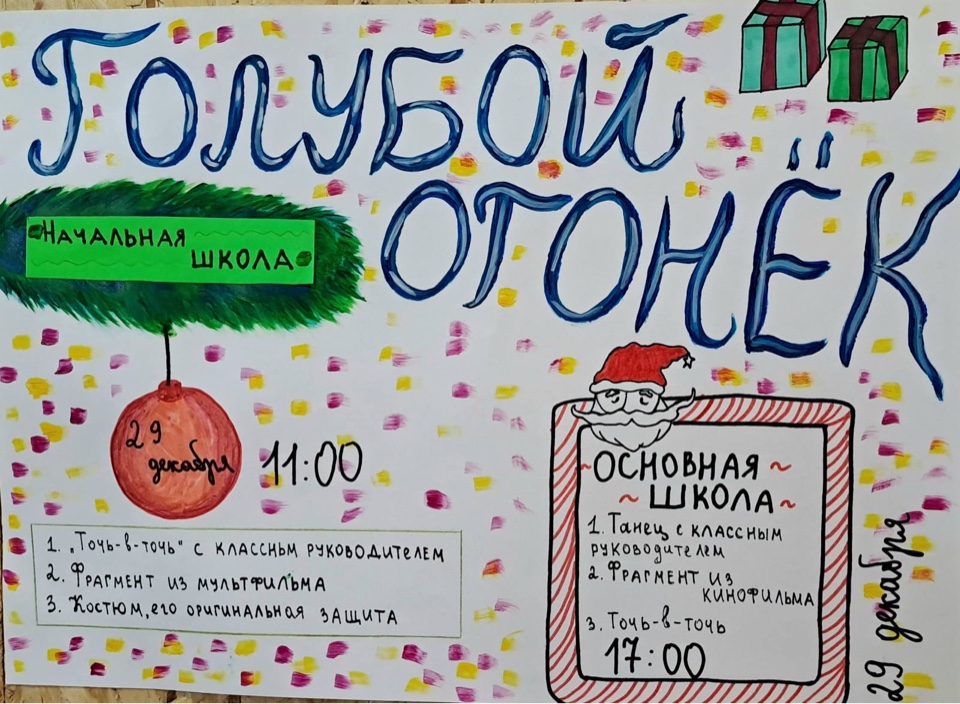 ГОЛУБОЙ
ОГОНЁК
НАЧАЛЬНАЯ
ШКОЛА
29
декабря
11:00
1. „Точь-в-точь" с классньм руководителем
2. Фрагмент из мультфильма
3. Костюм, его оригинальная защита
~ОСНОВНАЯ~
~ШКОЛА~
1. Танец с классным
руководителем
2. Фрагмент из
кинофильма
3. Точь-в-точь
17:00
29 декабря